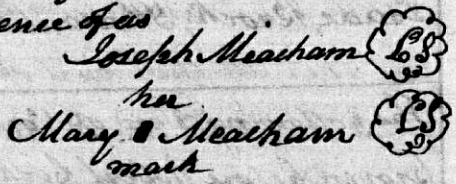 ence of us
Joseph Meacham LS
her
Mary Meacham LS
mark